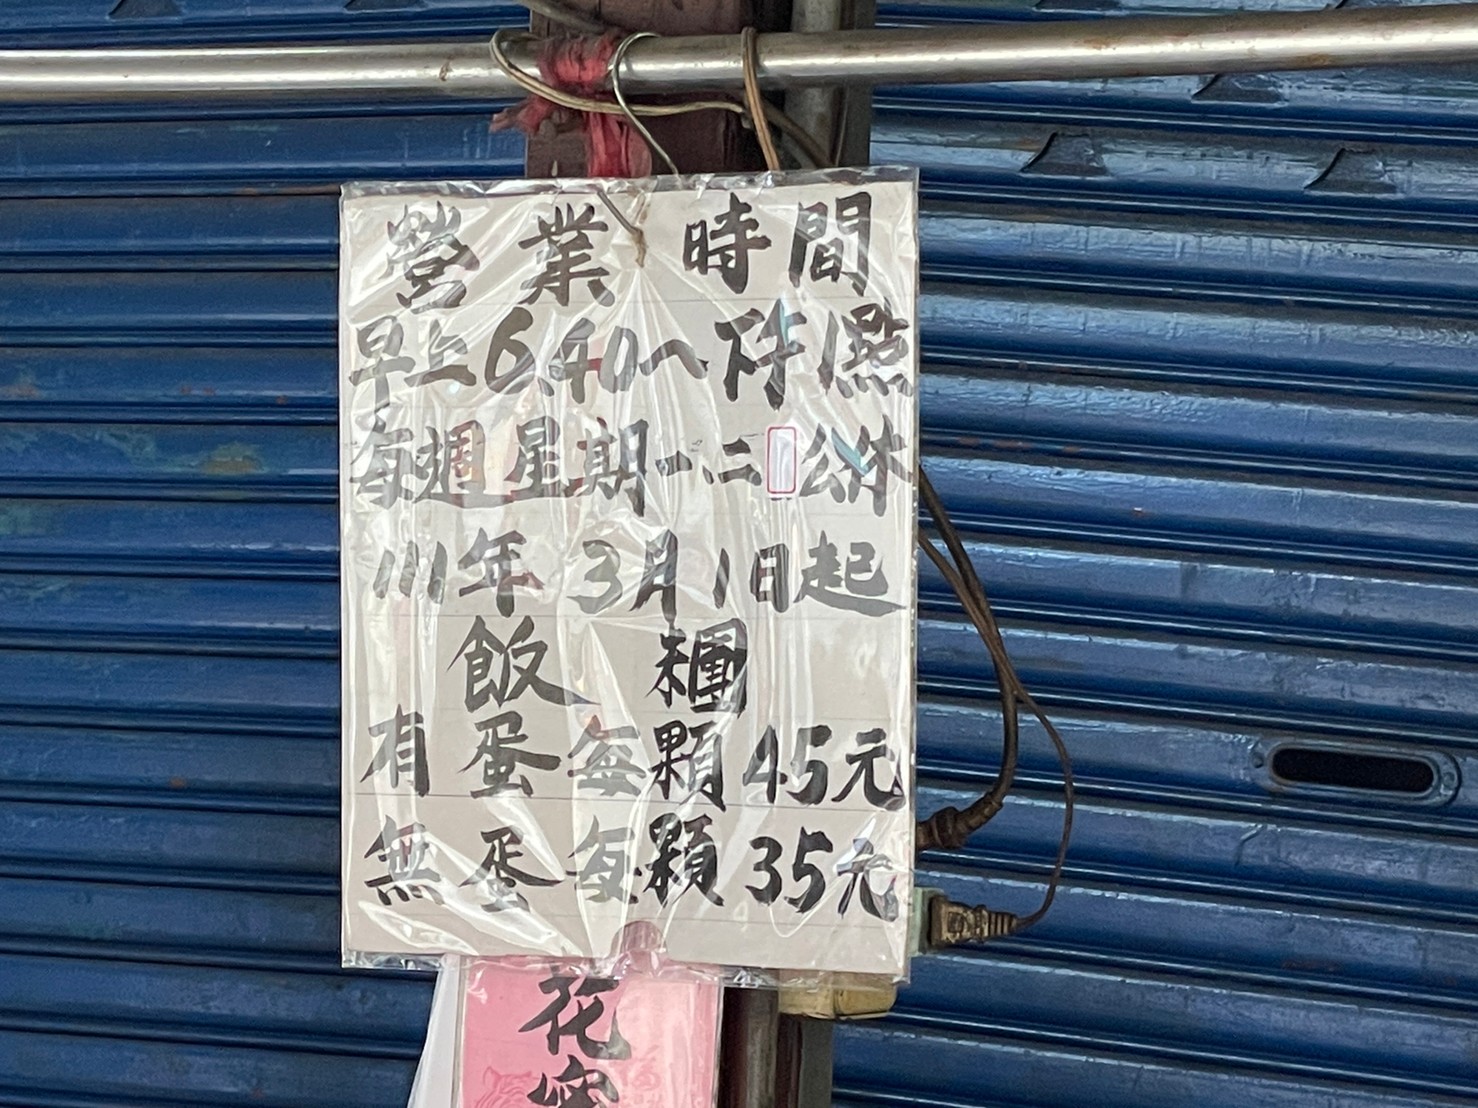 營業時間
早上6.40~下午1點
每週星期一.二公休
111年3月1日起
飯糰
有蛋每顆45元
無蛋每顆35元
花